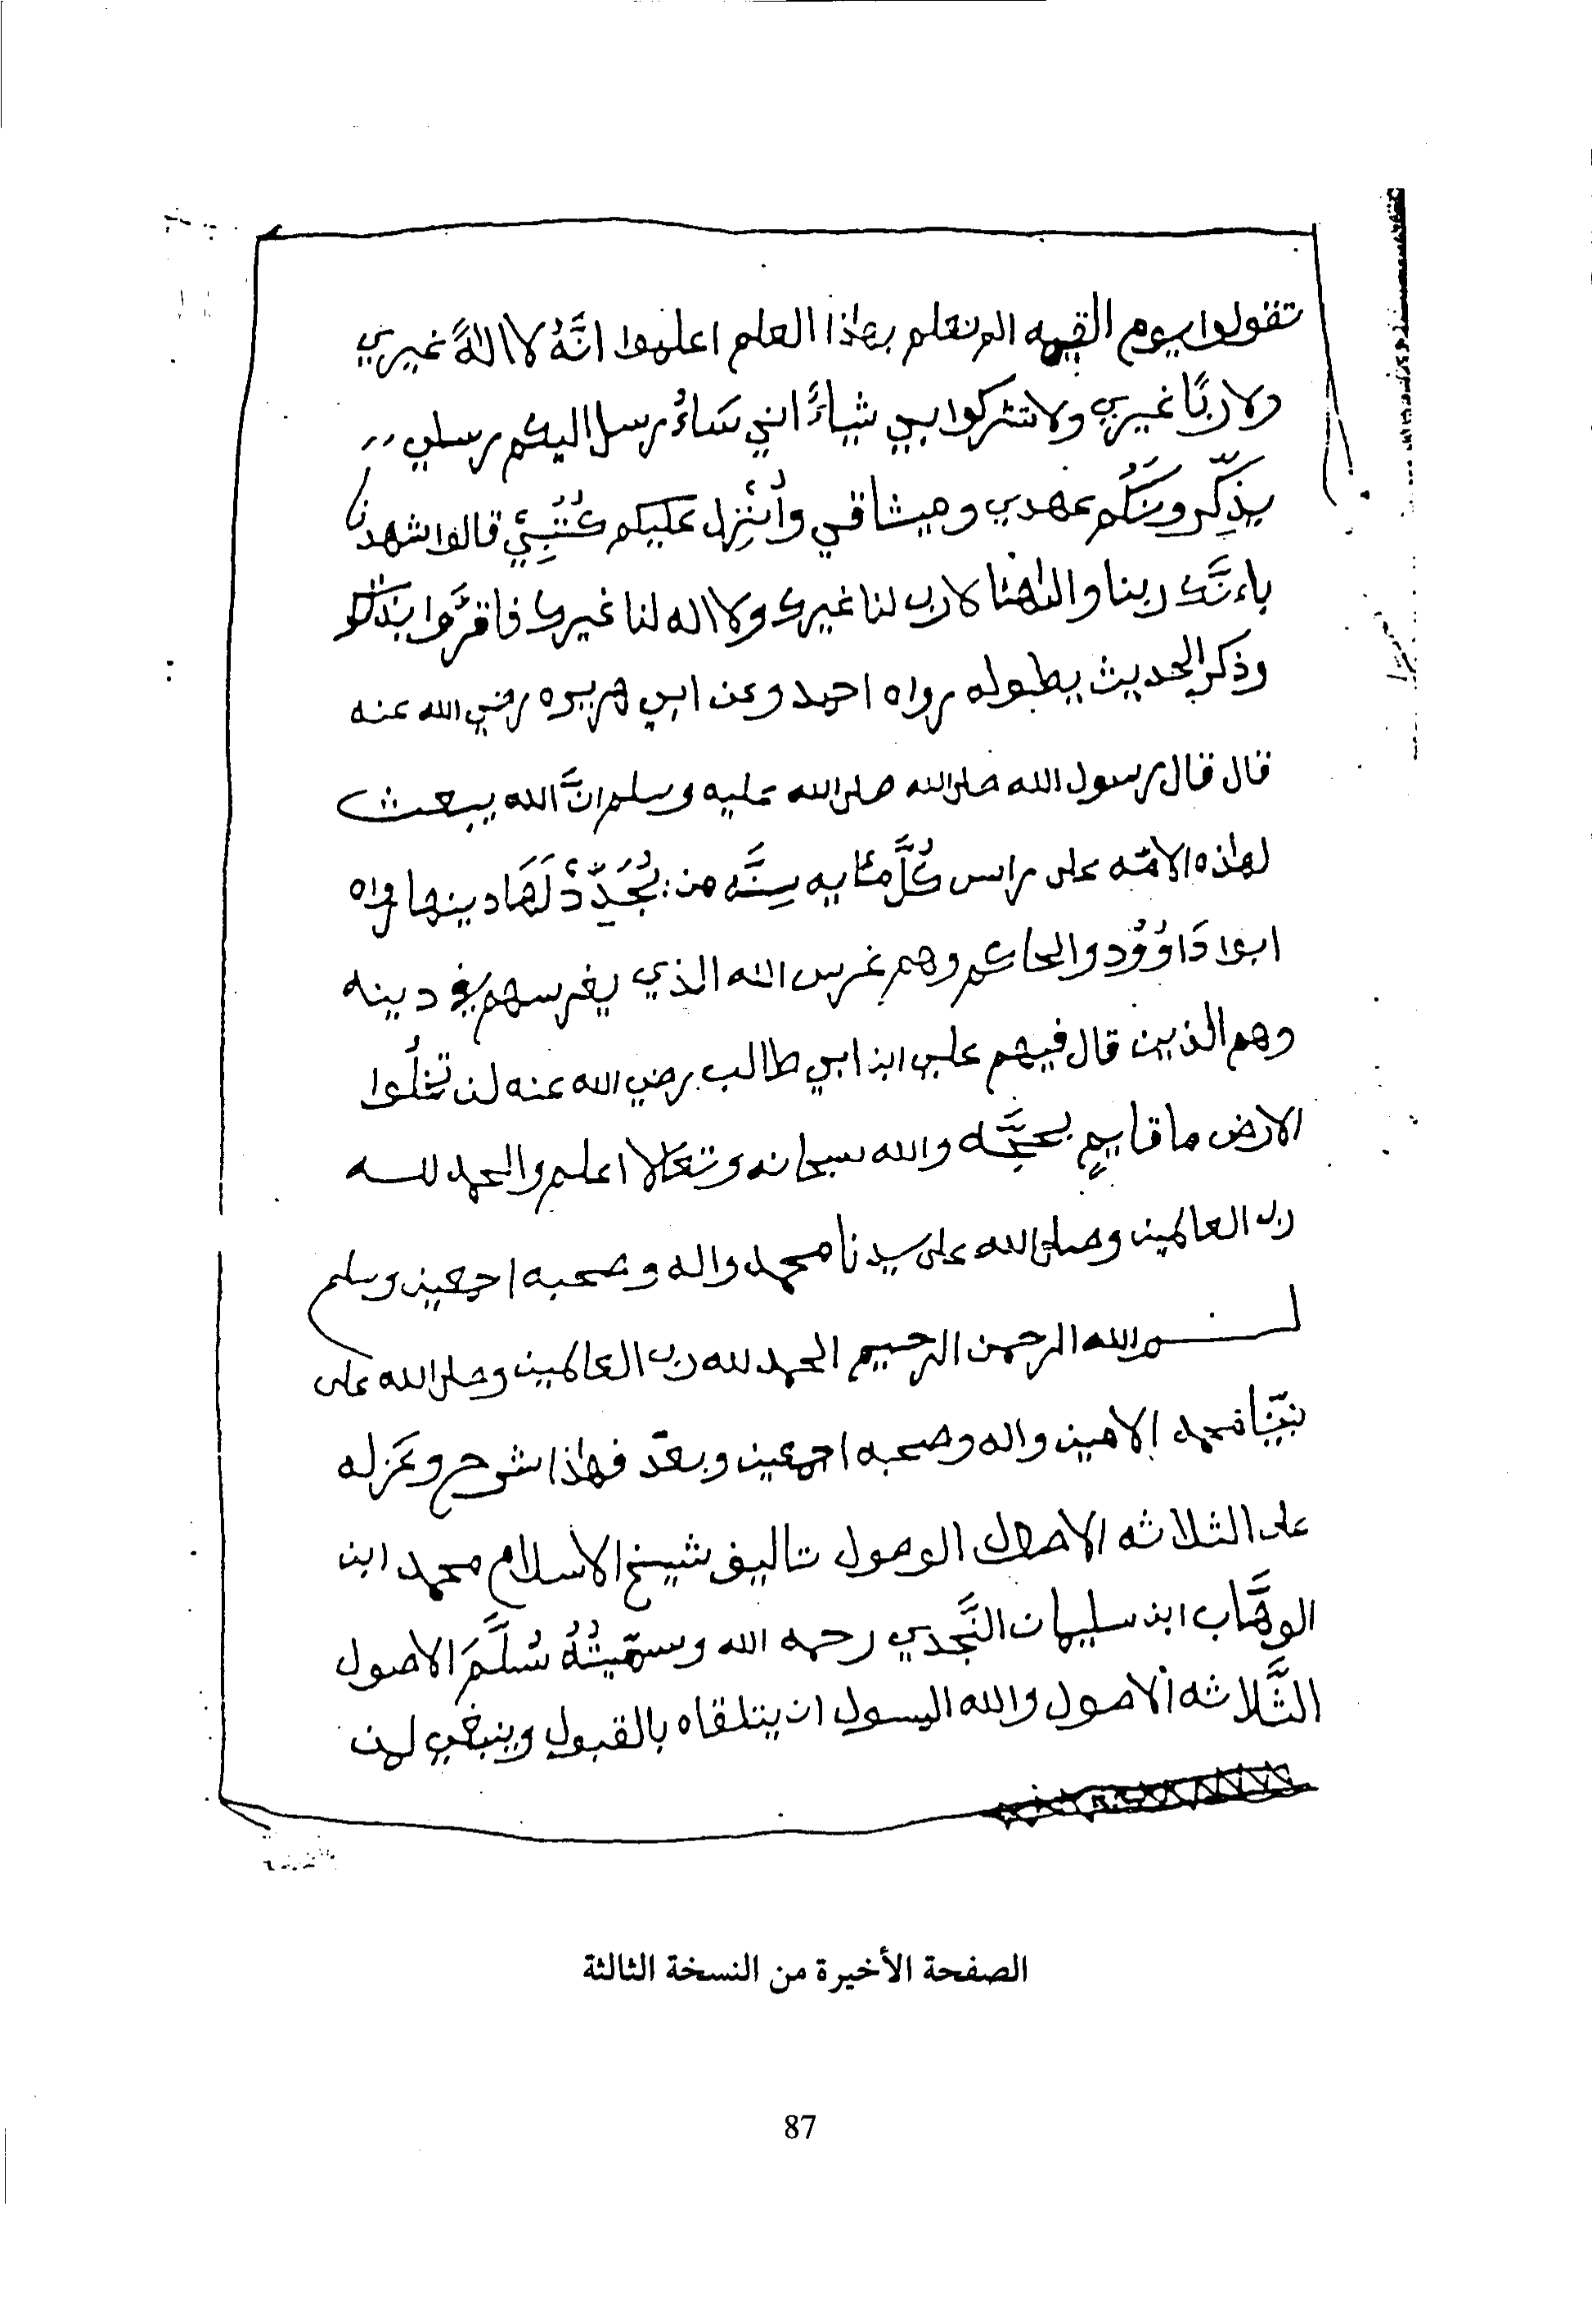 تقولوا يوم القيمه الم نعلم بهاذا العلم اعلموا انَّهُ لا الاهً غيري
ولا ربًا غيري ولا تشركوا بي شياءً اني سَاءُرسل اليكم رسلي
يذكِّرونَكُم عهدي وميثاقي وأُنْزِل عليكم كُتُبِيْ قالوا شهدنا
باءنَّك ربنا والاهنا لا رب لنا غيرك ولا اله لنا غيرك فاقرَّوا بذالك
وذكر الحديث بطوله رواه احمد وعن ابي هريره رضي الله عنه
قال قال رسول الله صلى الله صلى الله عليه وسلم انَّ الله يبعث
لهاذه الامّه على راس كُلَّ مئايه سِنَّه من يُجَدِّدْ لَهَا دينها رواه
ابوا دَاوُوُد والحاكم وهم غرس الله الذي يغرسهم في دينه
وهم الذين قال فيهم علي ابن ابي طالب رضي الله عنه لن تخلُوا
الارض ما قايمٍ بحجَّه والله سبحانه وتعَالا اعلم والحمد لله
رب العالمين وصلى الله على سيدنا محمد واله وصحبه اجمعين وسلم
بسم الله الرحمن الرحيم الحمد لله رب العالمين وصلى الله على
نبيّنا محمد الامين واله وصحبه اجمعين وبعدّ فهاذا شرح وعزله
على الثلاثه الاصول الوصول تاليف شيخ الاسلام محمد ابن
الوهَّاب ابن سليمان النَّجدي رحمه الله وسمّيتُهُ سُلَّمَ الاصول
الثَّلاثه الاصول والله اليسول ان يتلقاه بالقبول وينبغي لمن
الصفحة الأخيرة من النسخة الثالثة
87